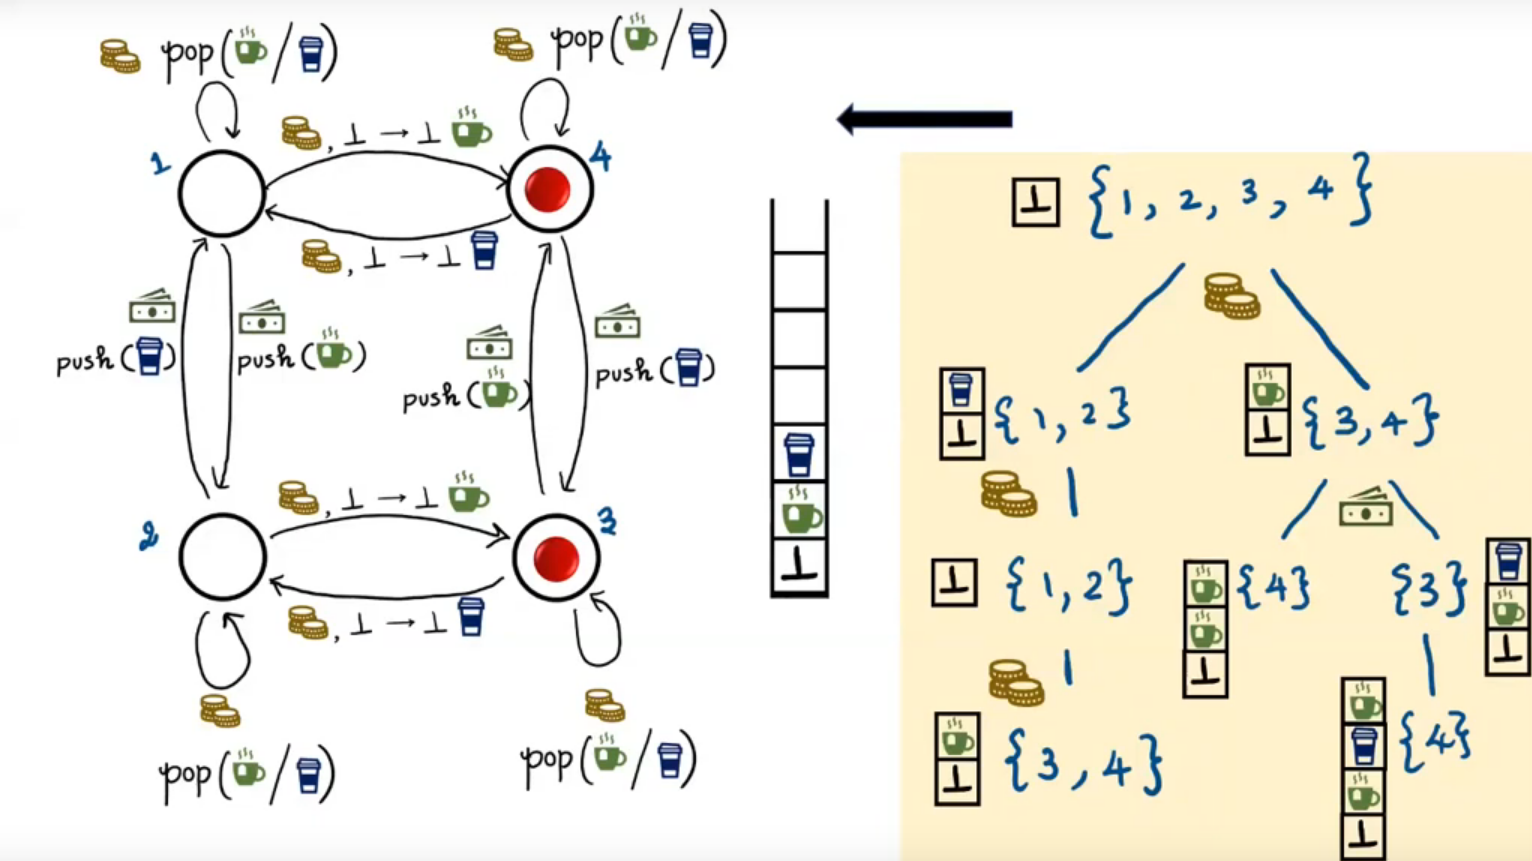 pop( / )
pop( / )
, ⊥ → ⊥
1
4
, ⊥ → ⊥
push( )
push( )
push( )
push( )
, ⊥ → ⊥
2
3
, ⊥ → ⊥
pop( / )
pop( / )
⊥
⊥ {1, 2, 3, 4}
⊥ {1, 2}
⊥ {3, 4}
⊥ {1, 2}
⊥ {4}
{3} ⊥
⊥ {3, 4}
⊥ {4}